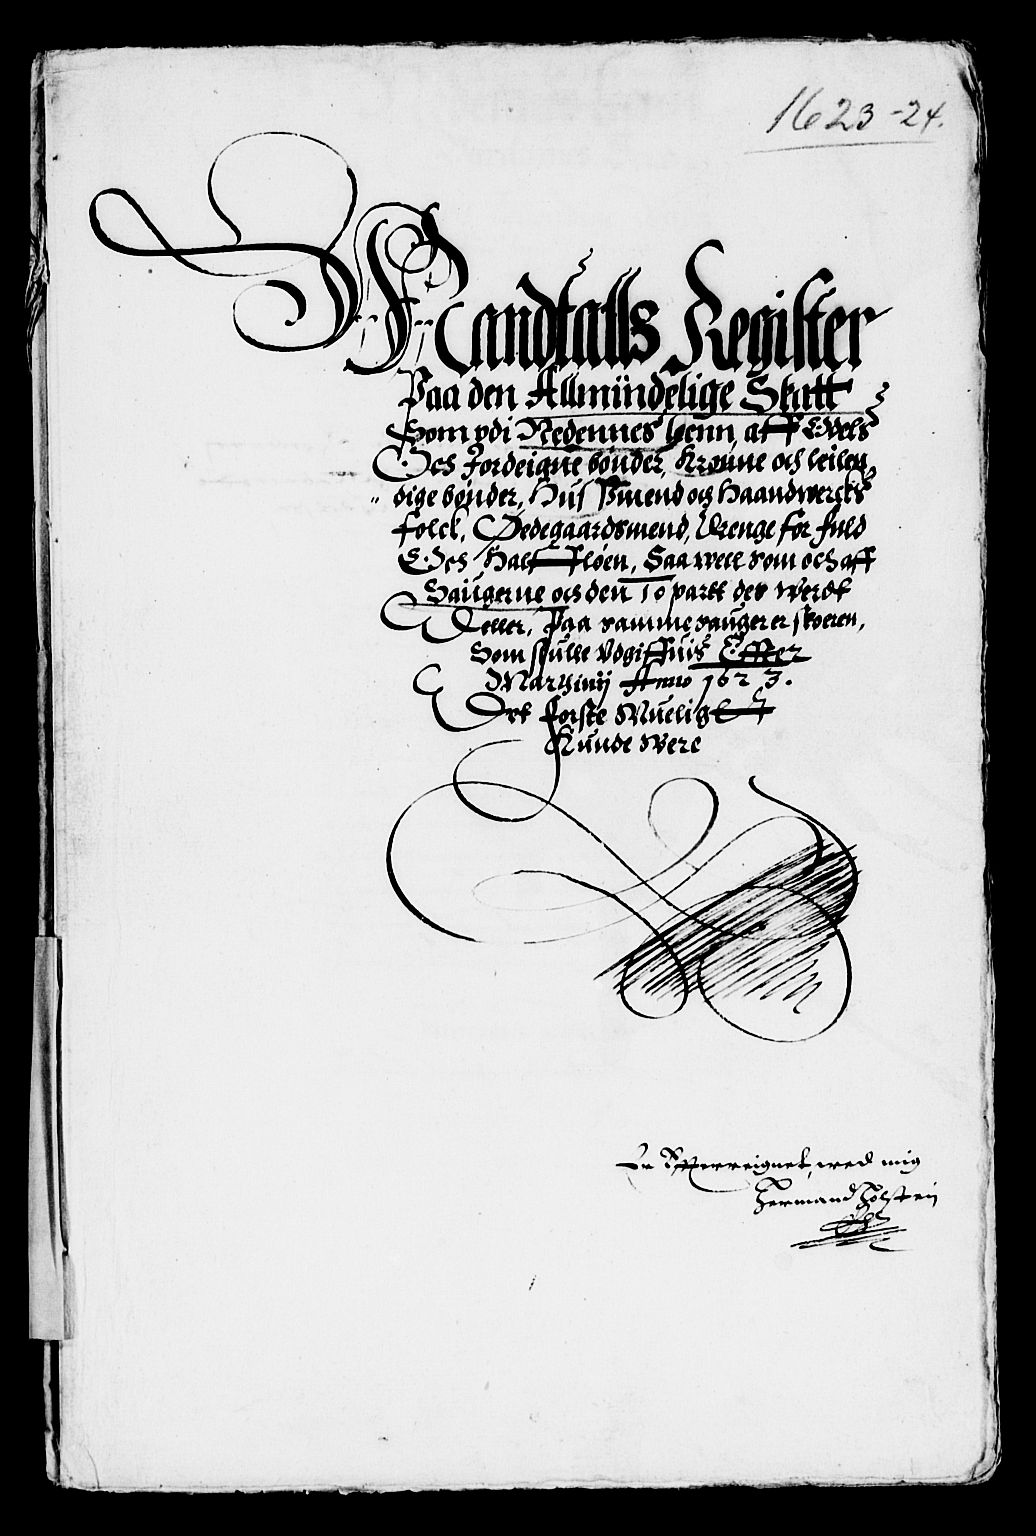 1623-24.
Mandtalls Register
Paa den Allmindelige Skatt
Som vdi Nedennes Lenn, aff Odels
Och Jordeigne bønder, Kronne och leilen
dige bønder, Huus Mend och Haandwercks
folck, Ødegaardsmend, Drenge for fuld
Och Half Løen, Saa well som och aff
Saugerne och den 10 partt der werdt
Deller, Paa samme sauger er skoeren,
Som skulle Vdgiffuis Effter
Martinij Anno 1623.
Det første Mueligt
Kunde were
hermand Holstein